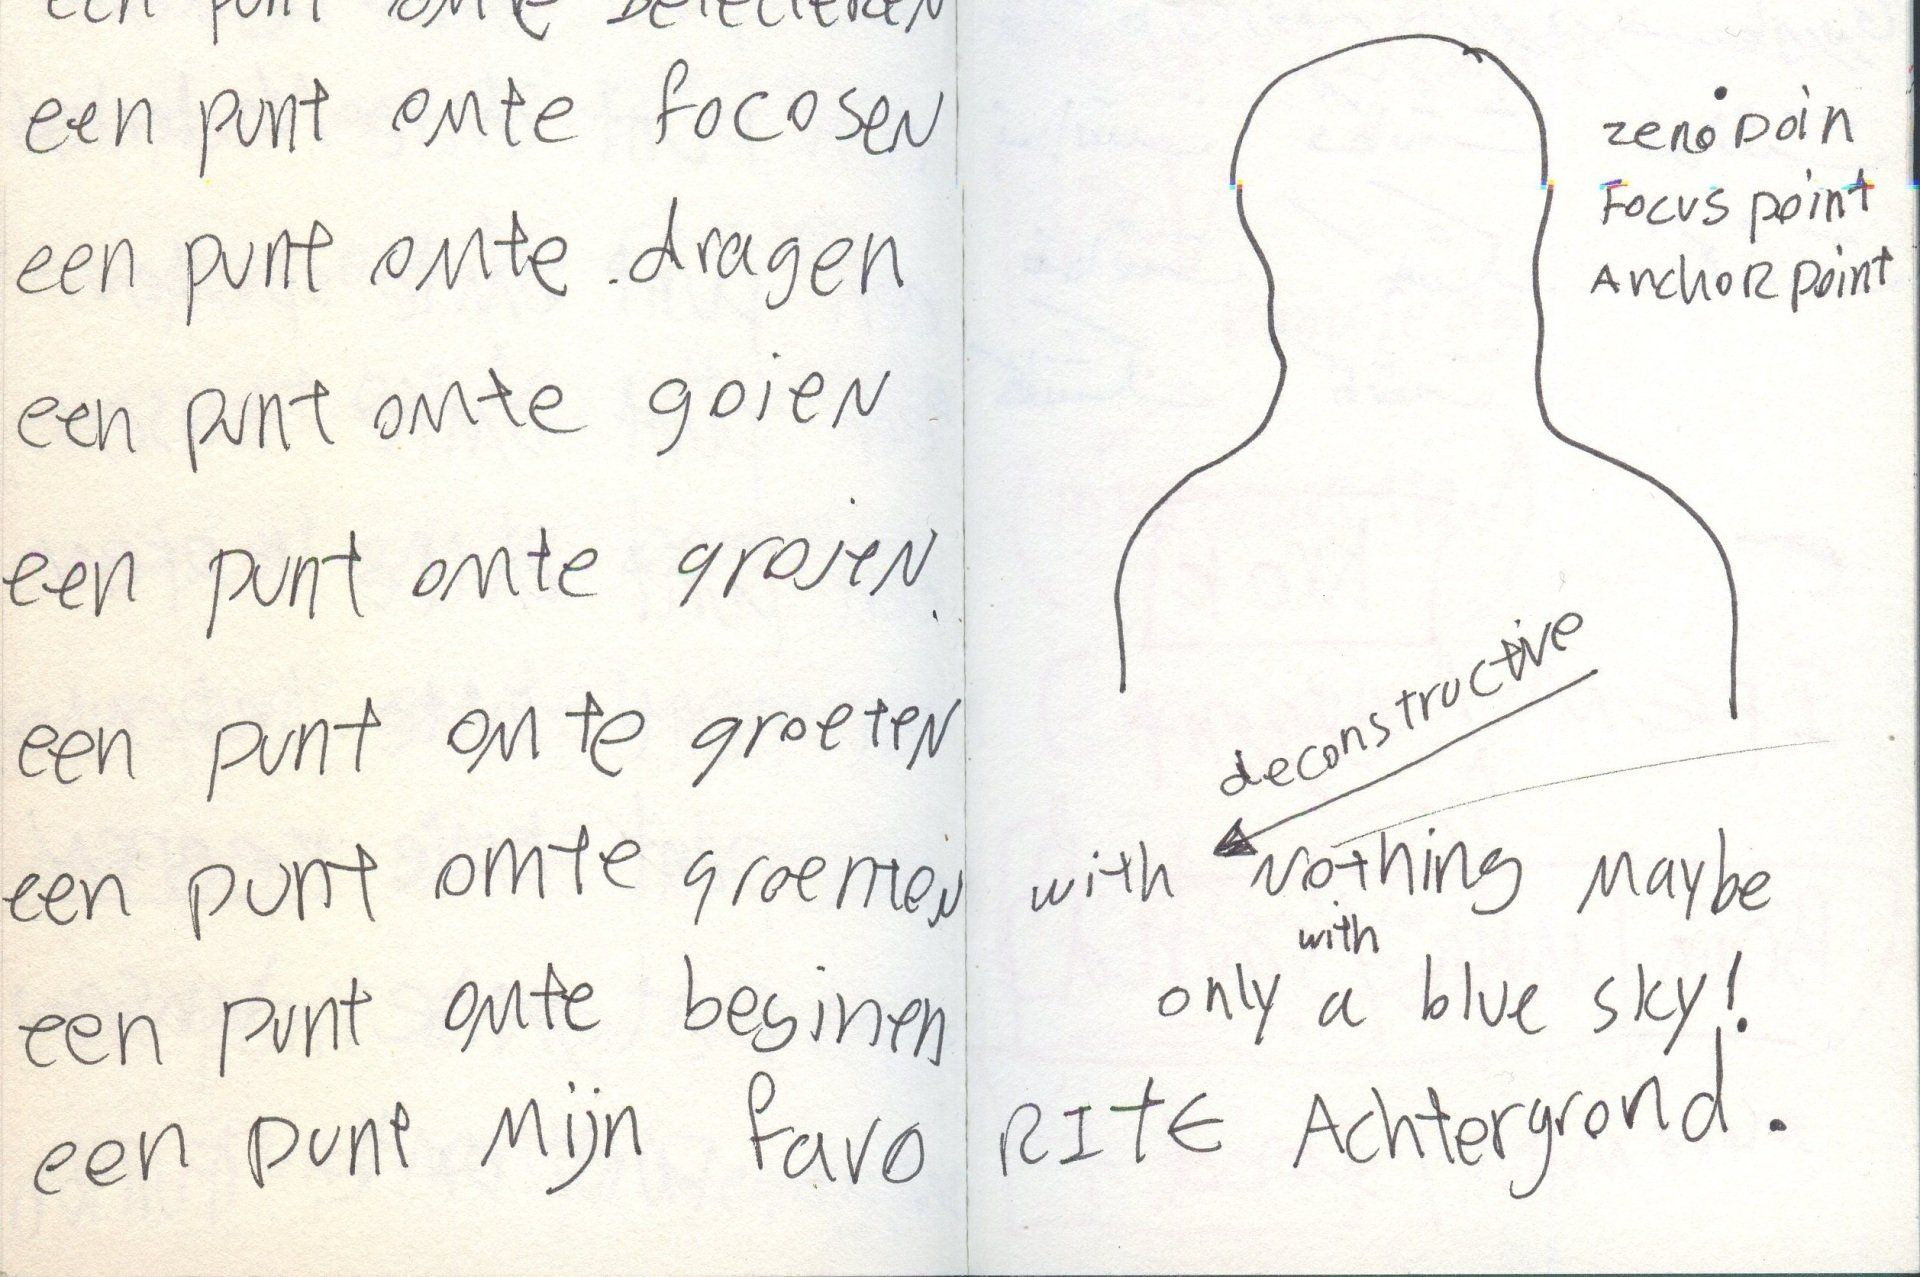 een punt omte Detecteren
een punt omte focosen
een punt omte .dragen
een punt omte goien
een punt omte grojen.
een punt omte groeten
een punt omte groenten
een punt omte beginen
een punt mijn favo RITE Achtergrond.
zero poin
Focus point
AnchoR point
deconstructive
with Nothing Maybe
with
only a blue sky!